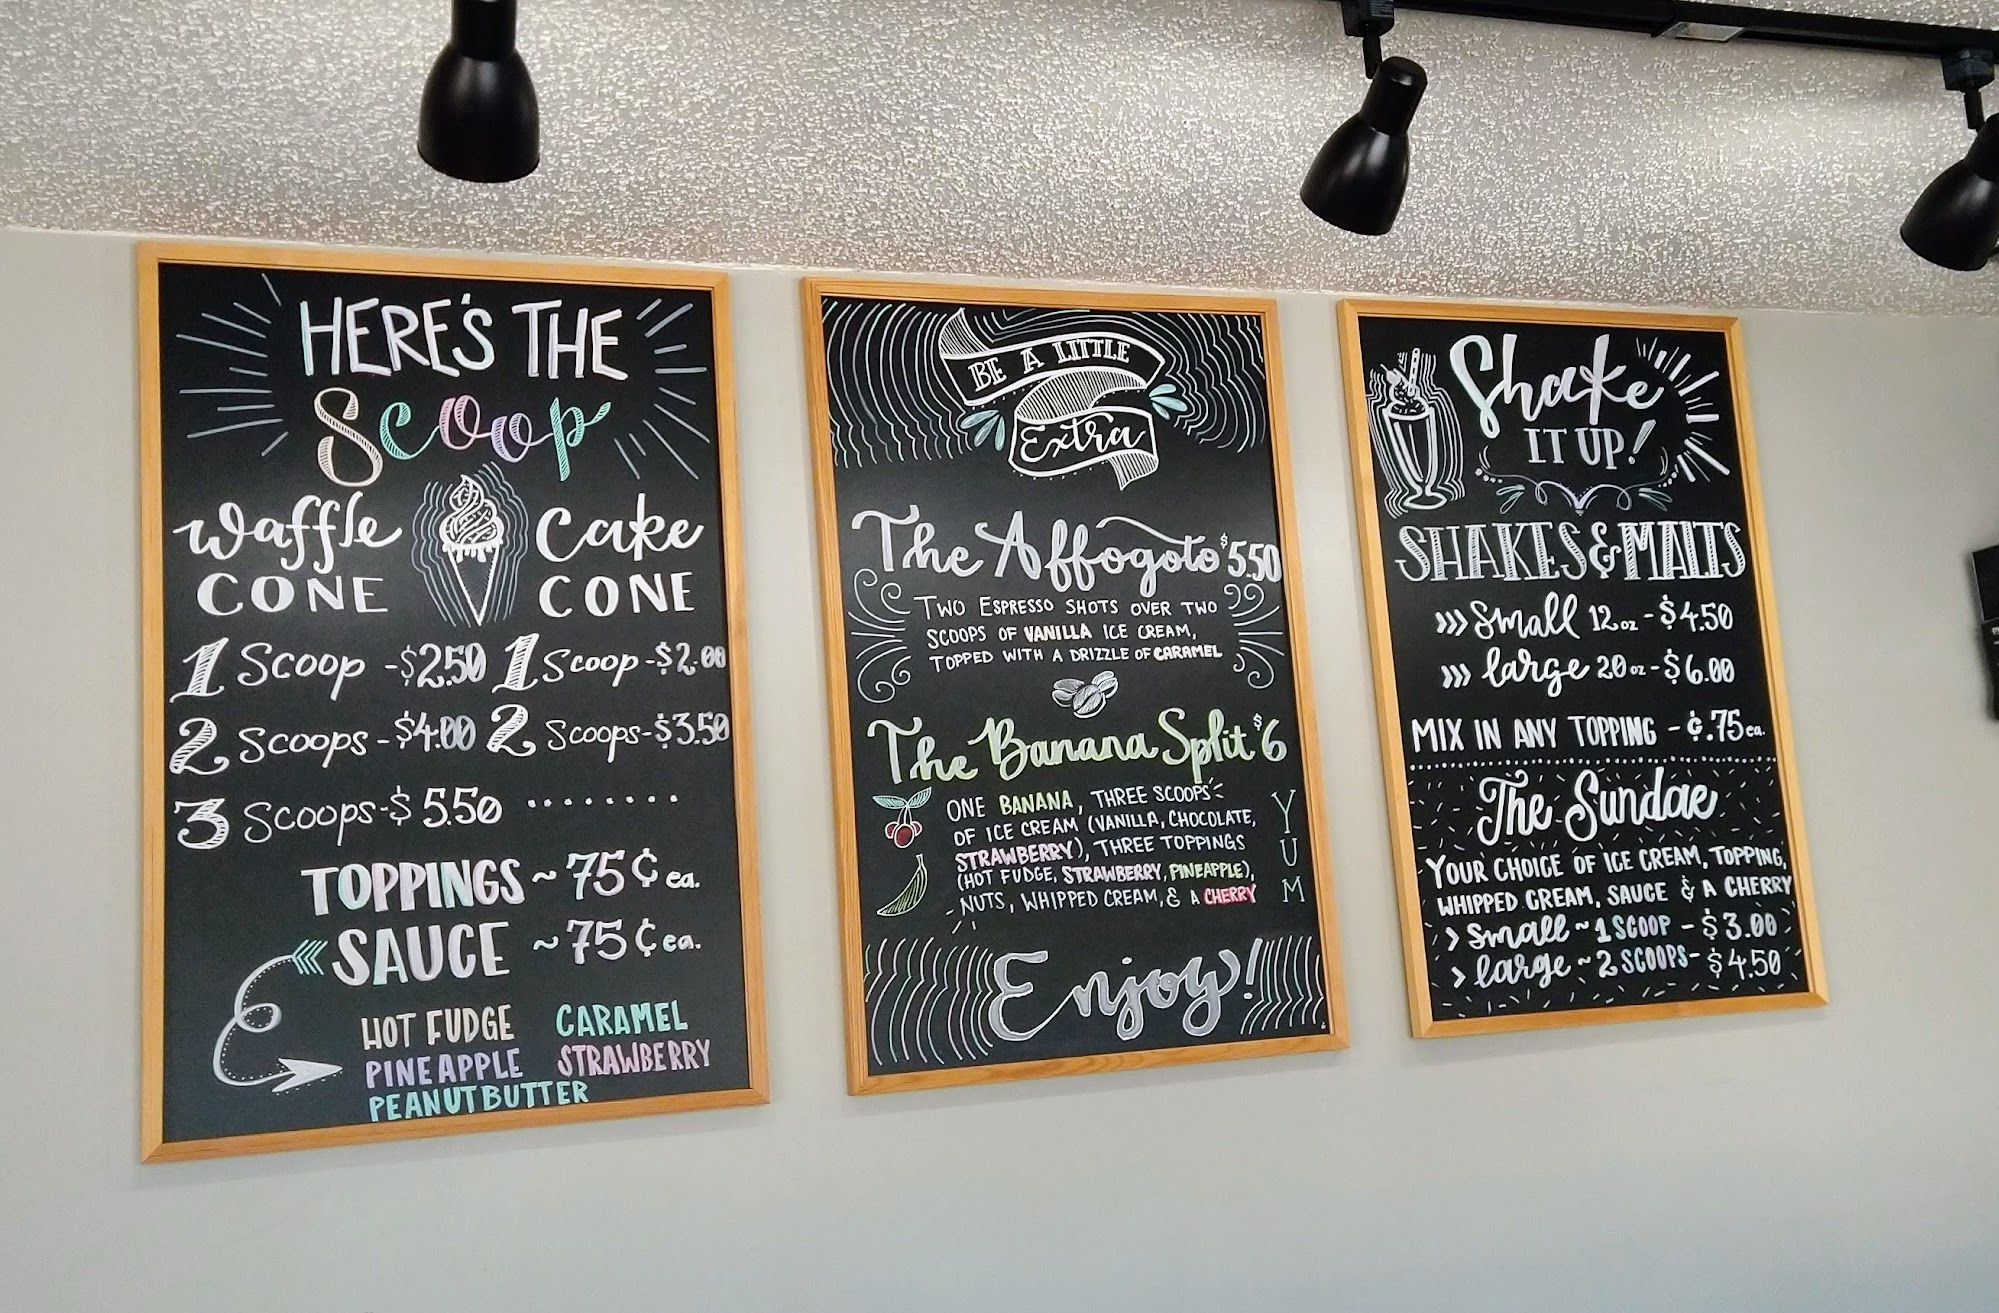 HERE'S THE
Scoop
Waffle
CONE
1 Scoop - $2.50
2 Scoops - $4.00
3 Scoops - $5.50
Cake
CONE
1 Scoop - $2.00
2 Scoops - $3.50
TOPPINGS ~ 75¢ ea.
SAUCE ~ 75¢ ea.
HOT FUDGE CARAMEL
PINEAPPLE STRAWBERRY
PEANUT BUTTER
BE A LITTLE
Extra
The Affogoto $5.50
TWO ESPRESSO SHOTS OVER TWO
SCOOPS OF VANILLA ICE CREAM,
TOPPED WITH A DRIZZLE OF CARAMEL
The Banana Split $6
ONE BANANA, THREE SCOOPS
OF ICE CREAM (VANILLA, CHOCOLATE,
STRAWBERRY), THREE TOPPINGS
(HOT FUDGE, STRAWBERRY, PINEAPPLE),
NUTS, WHIPPED CREAM, & A CHERRY
YUM
Enjoy!
Shake
IT UP!
SHAKES & MALTS
>>> Small 12oz - $4.50
>>> large 20oz - $6.00
MIX IN ANY TOPPING - ¢.75 ea.
The Sundae
YOUR CHOICE OF ICE CREAM, TOPPING,
WHIPPED CREAM, SAUCE & A CHERRY
> small ~ 1 SCOOP - $3.00
> large ~ 2 SCOOPS - $4.50